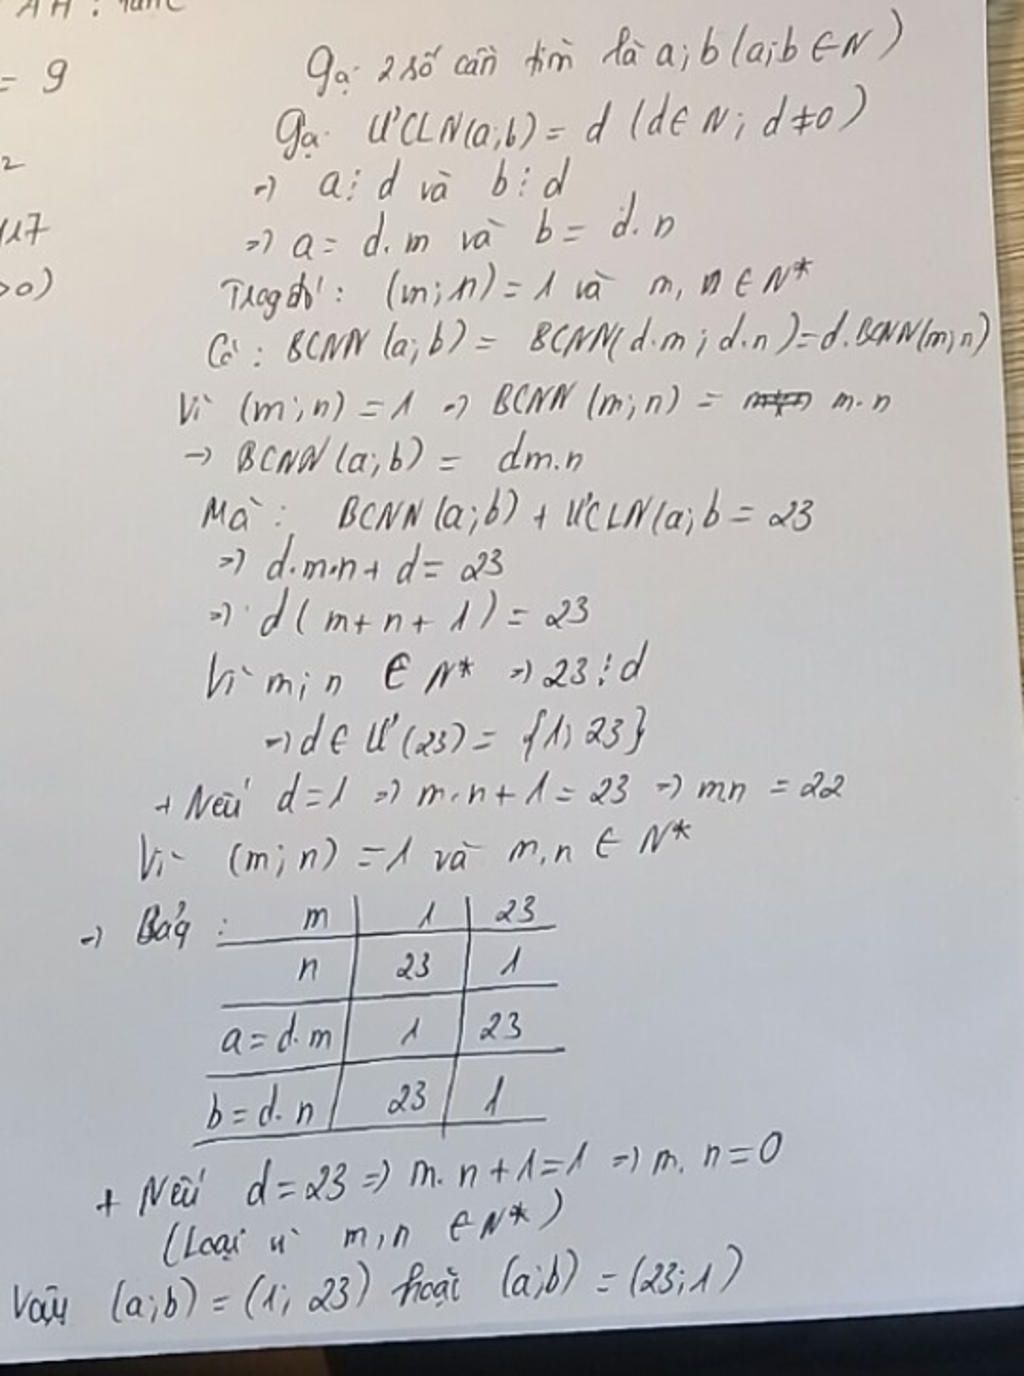 = 9
2
117
>0)
Gọi 2 số cần tìm là a;b (a;b ∈ N)
Gọi ƯCLN(a;b) = d (d ∈ N; d ≠ 0)
=> a ⋮ d và b ⋮ d
=> a = d.m và b = d.n
Trong đó: (m;n) = 1 và m, n ∈ N*
Có: BCNN (a;b) = BCNN(d.m; d.n) = d.BCNN(m;n)
Vì (m;n) = 1 => BCNN (m;n) = m.n
-> BCNN (a;b) = dm.n
Mà: BCNN (a;b) + ƯCLN(a;b = 23
=> d.m.n + d = 23
=> d(m + n + 1) = 23
Vì m; n ∈ N* => 23 ⋮ d
=> d ∈ Ư(23) = {1; 23}
+ Nếu d = 1 => m.n + 1 = 23 => mn = 22
Vì (m; n) = 1 và m,n ∈ N*
=> Bảng :
m 1 23
n 23 1
a = d.m 1 23
b = d.n 23 1
+ Nếu d = 23 => m.n + 1 = 1 => m.n = 0
(Loại vì m,n ∈ N*)
Vậy (a;b) = (1; 23) hoặc (a;b) = (23;1)